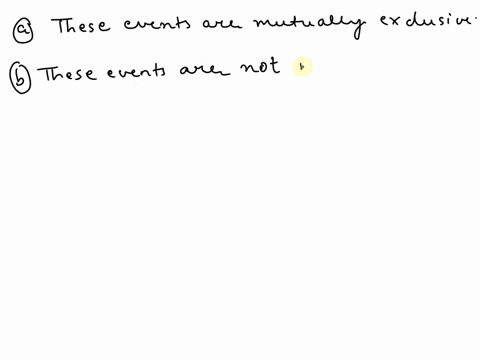 (a) These events are mutually exclusive.
(b) These events are not